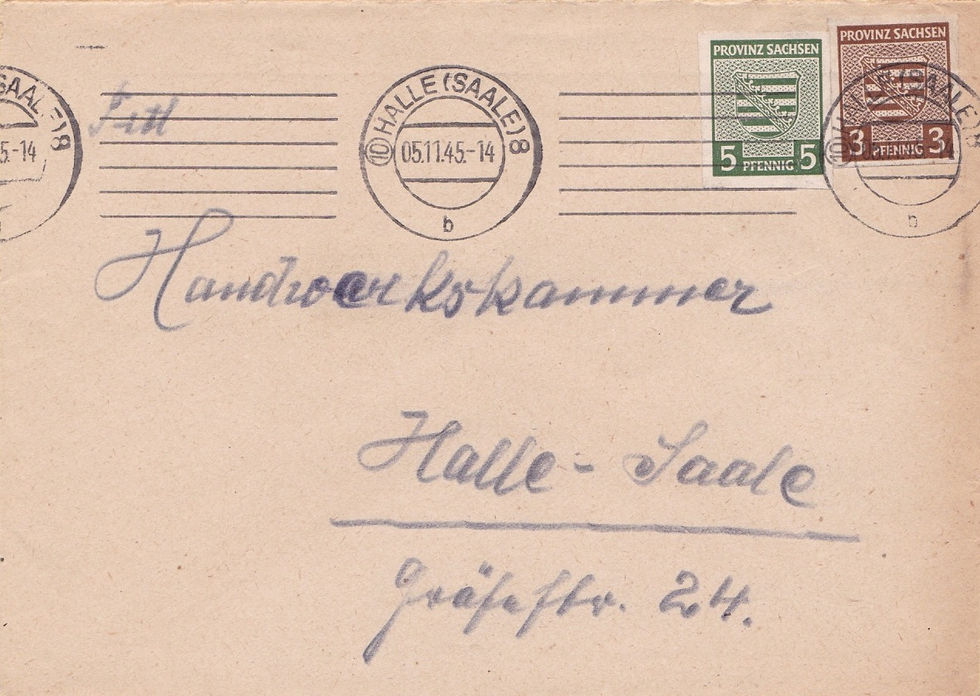 PROVINZ SACHSEN
5 PFENNIG 5
PROVINZ SACHSEN
3 PFENNIG 3
SAALE) 8
5.-14
(10) HALLE (SAALE) 8
05.11.45.-14
b
SAALE) 8
b
Handwerkskammer
Halle - Saale
Gräfestr. 24.